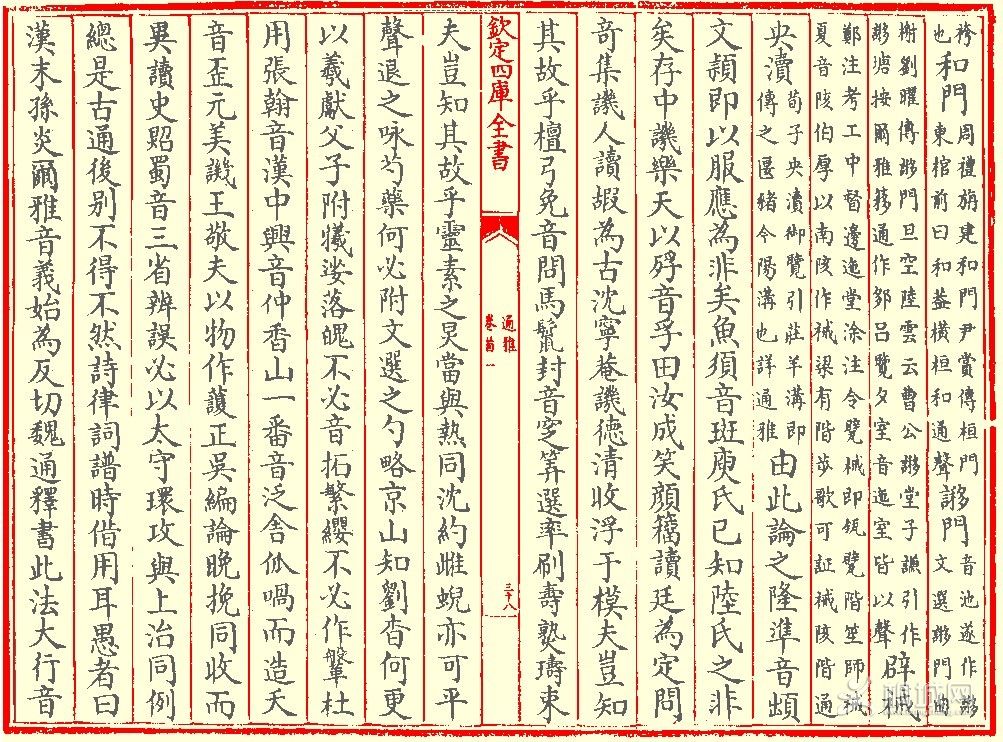 袴
也和門周禮旃建和門尹賞傳桓門
東棺前曰和葢橫桓和通聲謻門音池遂作謻
文選謻門曲
榭劉曜傳謻門旦空陸雲云曹公謻堂子謙引作
謻塘按爾雅簃通作邹吕覽夕室音迤室皆以聲辟裓
鄭注考工中督邊迤堂涂注令甓裓即瓴甓階笙師裓
夏音陔伯厚以南陔作裓梁有階苶歌可証裓陔階通
央瀆荀子央瀆御覽引莊羊溝即
傳之匽豬今陽溝也詳通雅由此論之隆準音䪼
文頴即以服應為非矣魚須音班庾氏已知陸氏之非
矣存中譏樂天以殍音孚田汝成笑顔籀讀廷為定問
竒集譏人讀嘏為古沈寧菴譏德清收浮于模夫豈知
其故乎檀弓免音問馬鬛封音窆筭選率刷夀塾璹朿
欽定四庫全書
通雅
卷首一
三十八
夫豈知其故乎靈素之炅當與熱同沈約雌蜺亦可平
聲退之咏芍藥何必附文選之勺略京山知劉杳何更
以羲獻父子附犧娑落魄不必音拓繁纓不必作鞶杜
用張翰音漢中興音仲香山一番音泛舍𠈁喎而造夭
音歪元美譏王敬夫以物作䕶正吳編論晚挽同收而
異讀史炤蜀音三省辨誤必以太守環攻與上治同例
總是古通後别不得不然詩律詞譜時偕用耳愚者曰
漢末孫炎爾雅音義始為反切魏通釋書此法大行音